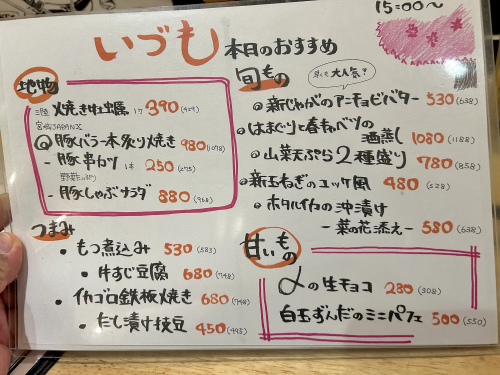 15:00〜
いづも 本日のおすすめ
地物
三陸 焼き牡蠣 1ケ 390 (429)
宮崎JAPAN X
◎豚バラ一本炙り焼き 980 (1078)
- 豚串カツ 1本 250 (275)
野菜たっぷり
- 豚しゃぶサラダ 880 (968)
つまみ
• もつ煮込み 530 (583)
• 牛すじ豆腐 680 (748)
• イカゴロ鉄板焼き 680 (748)
• だし漬け枝豆 450 (495)
旬もの
早くも大人気?
◎新じゃがのアンチョビバター 530 (638)
◎はまぐりと春キャベツの
酒蒸し 1080 (1188)
◎山菜天ぷら2種盛り 780 (858)
◎新玉ねぎのエッグ風 480 (528)
◎ホタルイカの沖漬け
- 菜の花添え - 580 (638)
甘いもの
〆の生チョコ 280 (308)
白玉ずんだのミニパフェ 500 (550)